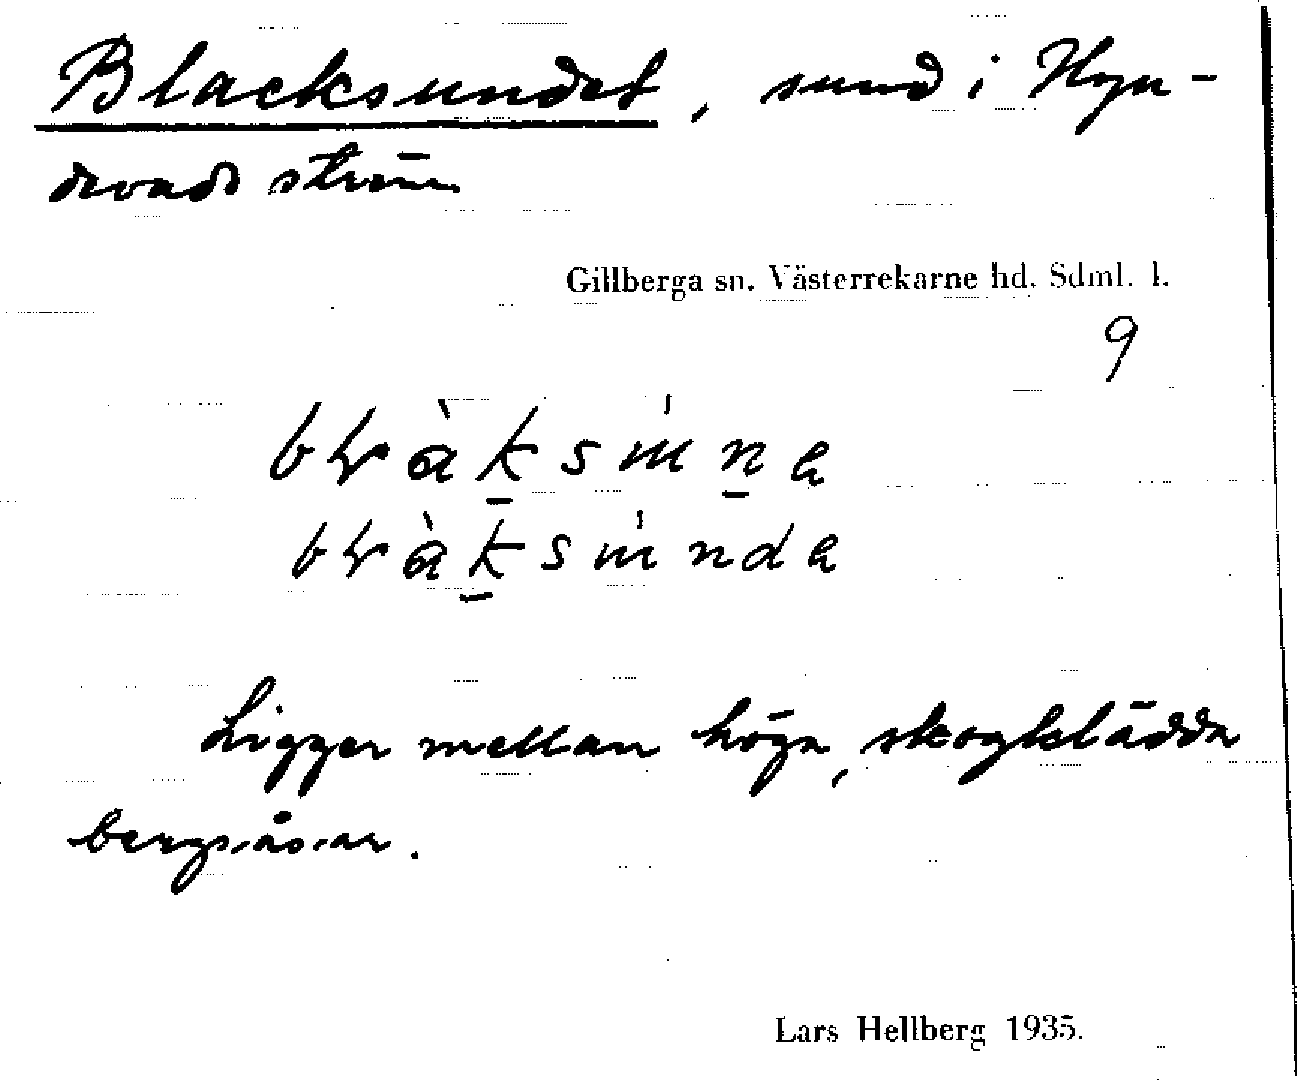 Blacksundet, sund i Hyn-
devads ström
Gillberga sn. Västerrekarne hd. Sdml. l.
9
Ligger mellan höga, skogklädda
bergsåsar.
Lars Hellberg 1935.